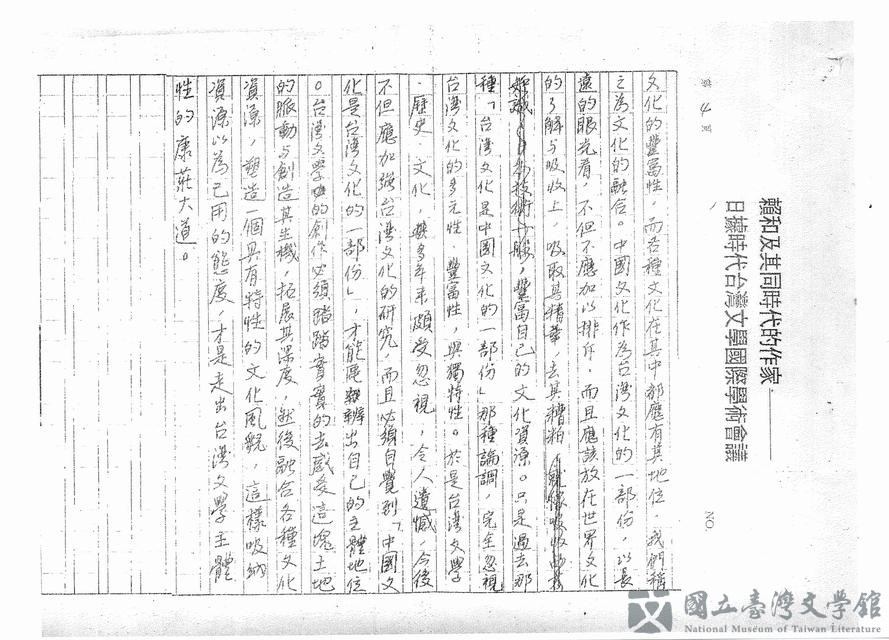 賴和及其同時代的作家──
日據時代台灣文學國際學術會議
NO.
第 4 頁
文化的豐富性,而各種文化在其中都應有其地位,我們稱
之為文化的融合。中國文化作為台灣文化的一部份,以長
遠的眼光看,不但不應加以排斥,而且應該放在世界文化
的了解与吸收上,吸取其精華,去其糟粕,就像吸收西方
知識、為技術一般,豐富自己的文化資源。只是過去那
種「台灣文化是中國文化的一部份」那種論調,完全忽視
台灣文化的多元性、豐富性,與獨特性。於是台灣文學
、歷史、文化,幾多年來頗受忽視,令人遺憾,今後
不但應加強台灣文化的研究,而且必須自覺到「中國文
化是台灣文化的一部份」,才能辨出自己的主體地位
。台灣文學的創作必須踏踏實實的去感受這塊土地
的脈動与創造其生機,拓展其深度,然後融合各種文化
資源,塑造一個具有特性的文化風貌,這樣吸納
資源以為己用的態度,才是走出台灣文學主體
性的康莊大道。
國立臺灣文學館
National Museum of Taiwan Literature